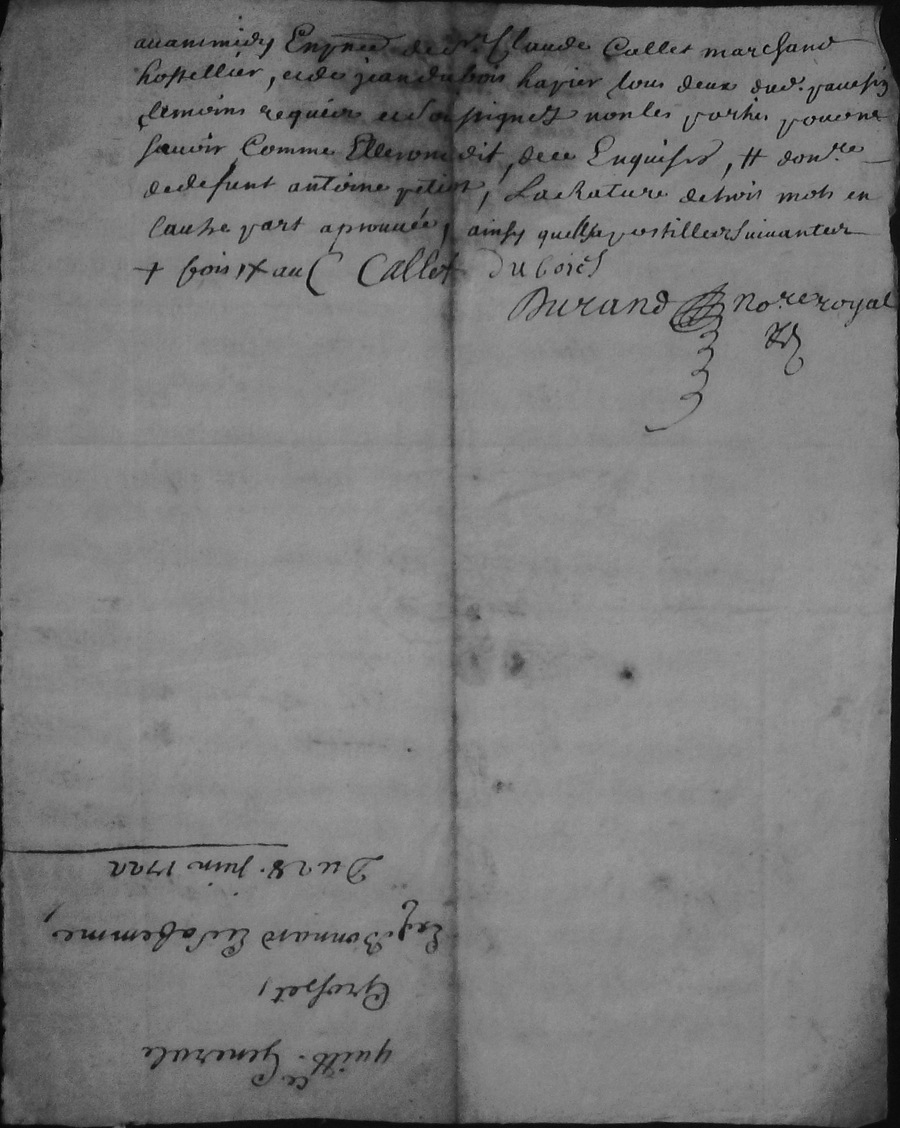 avant midy En pnce de Sr Claude Callet marchand
hostellier, et de jean dubois tous deux dud.
temoins requis et Soussignez non les parties pour ne
scavoir Comme Elles ont dit, de ce Enquises, # donre
de defunt antoine petiot, La Rature de trois mots en
lautre part aprouvée, ainsy que les postilles Suivantes
+ fois X au Callet Dubois
Durand Nore royal
quittce Generale
Grosset,
Bonnard Et Sa femme,
Du 28. juin 1722